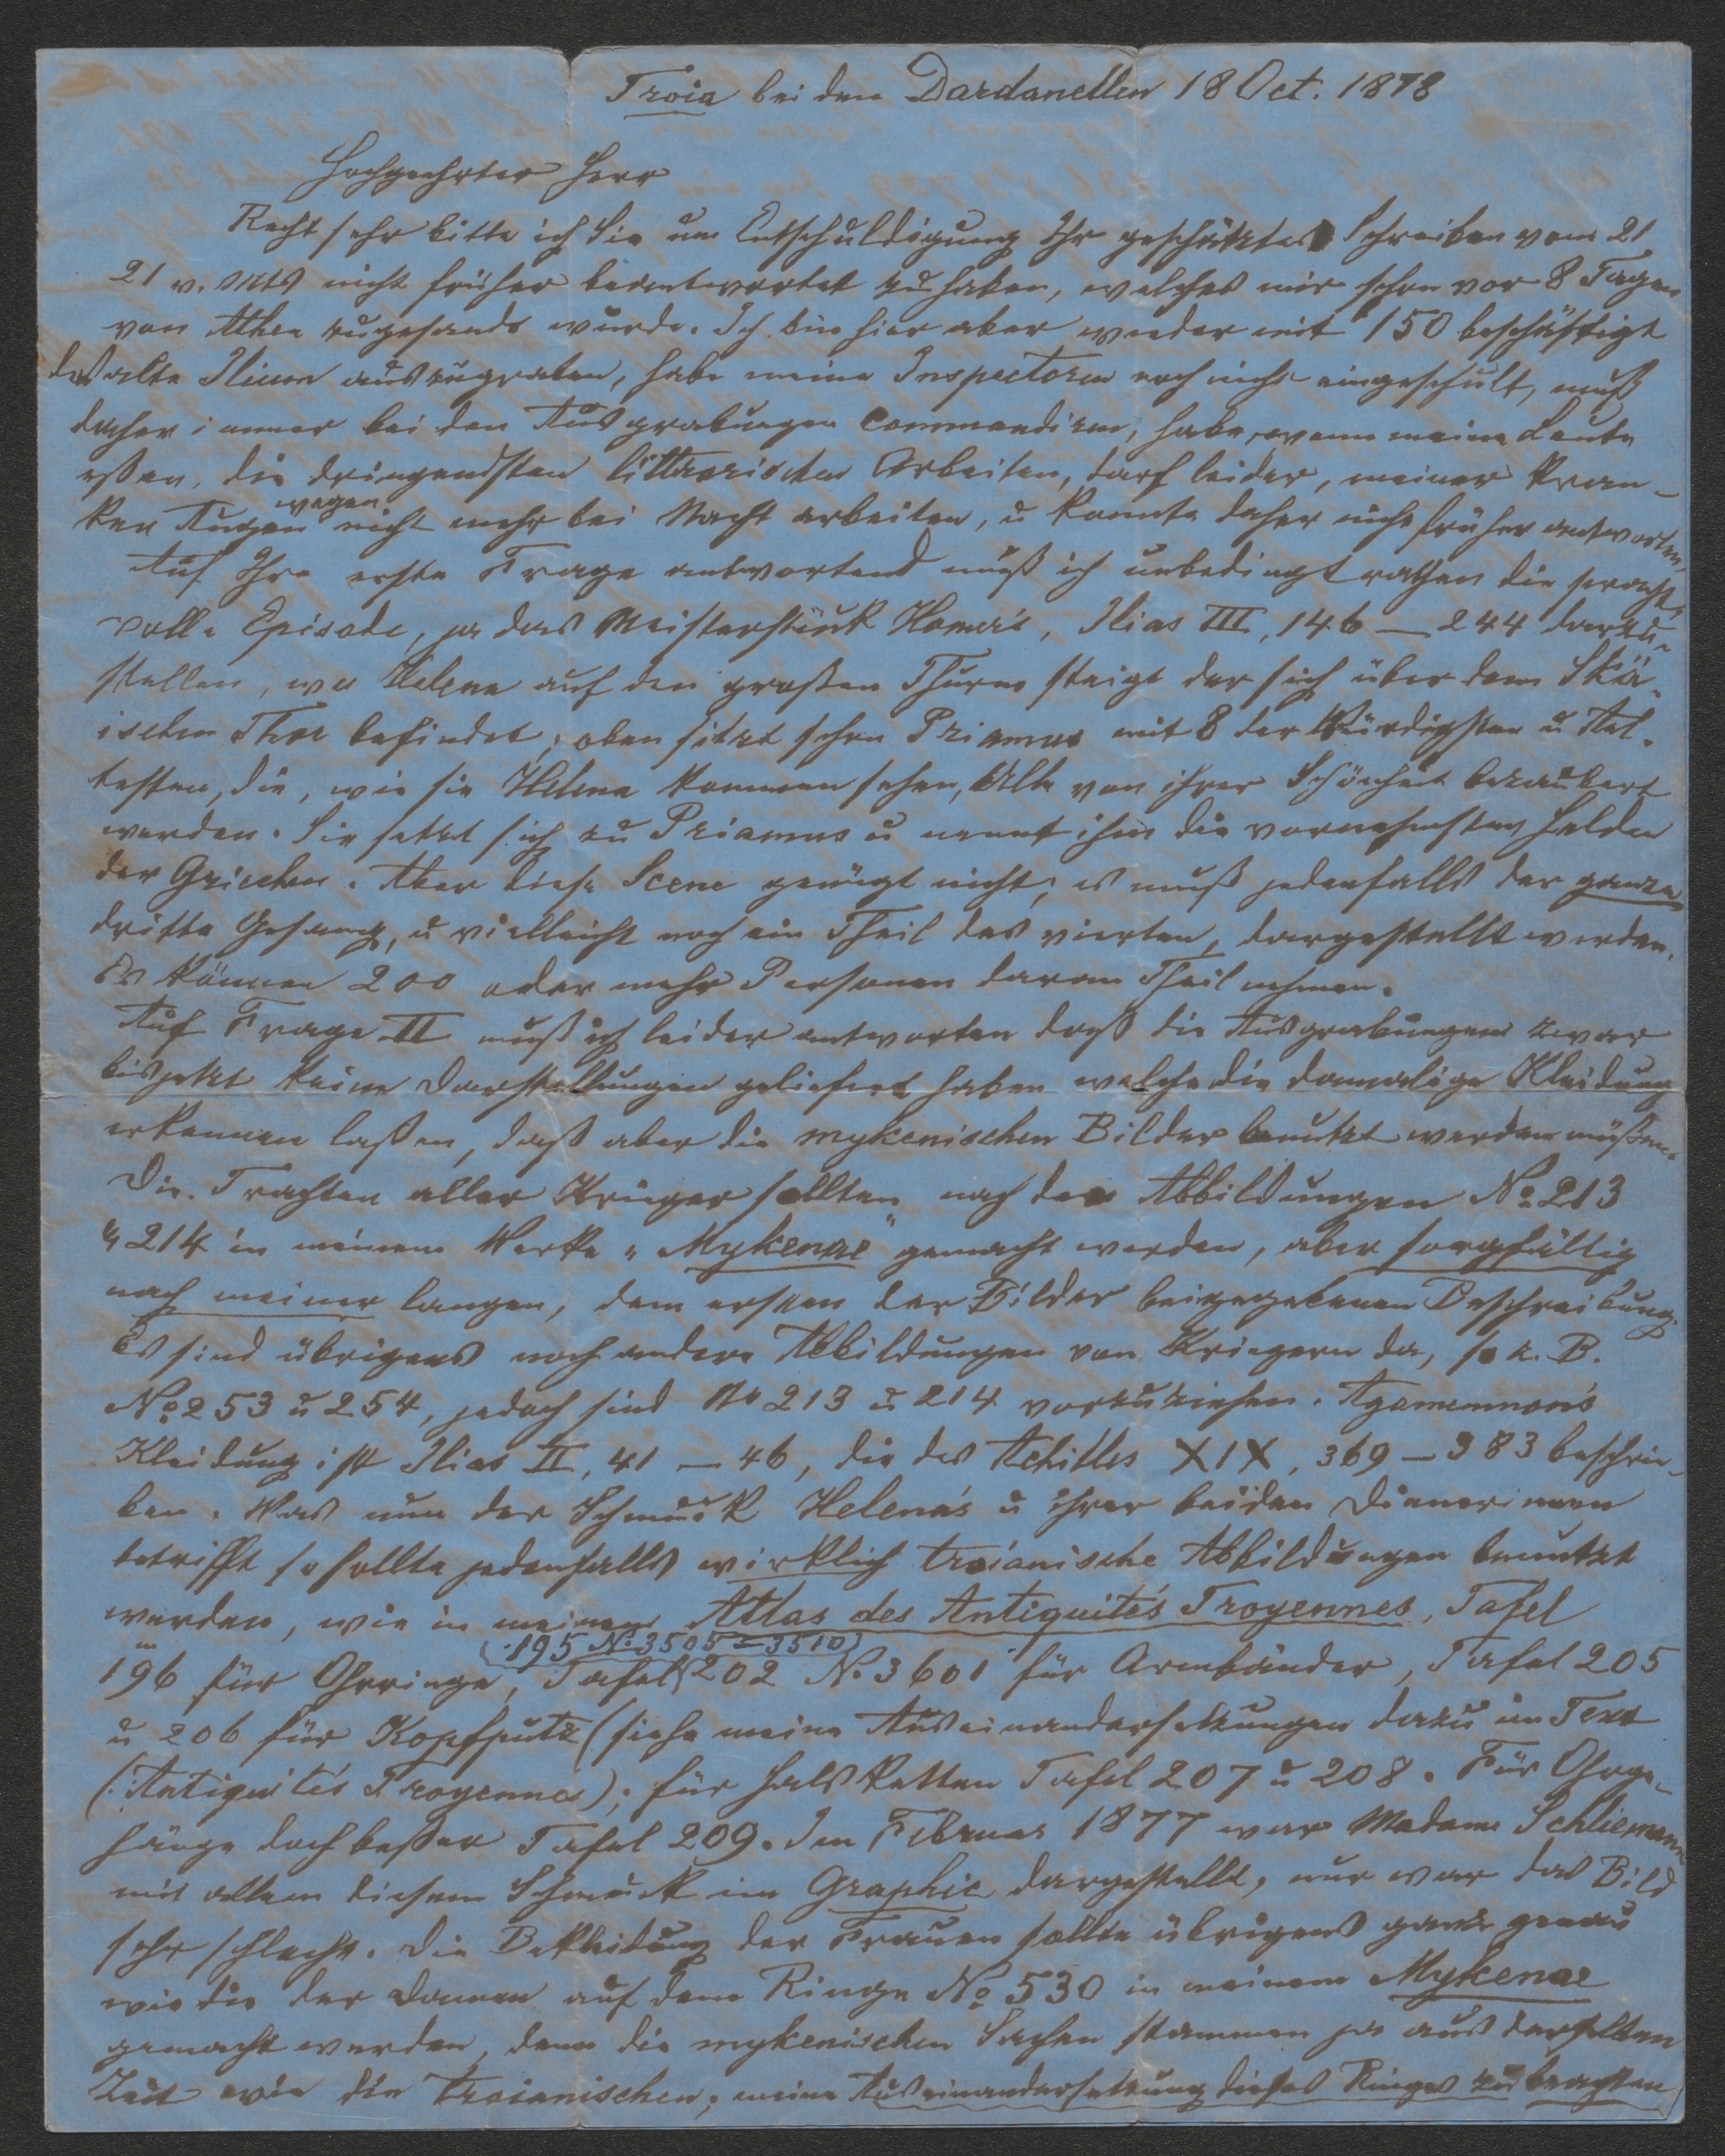 Troia bei den Dardanellen 18 Oct. 1878
Hochgeehrter Herr
Recht sehr bitte ich Sie um Entschuldigung Ihr geschätztes Schreiben vom 21
21 v. Mts nicht früher beantwortet zu haben, welches mir schon vor 8 Tagen
von Athen zugesandt wurde. Ich bin hier aber wieder mit 150 beschäftigt
das alte Ilium auszugraben, habe meine Inspectoren noch nicht eingeschult, muß
daher immer bei den Ausgrabungen commandiren, habe, wenn meine Leute
eßen, die dringendsten litterarischen Arbeiten, darf leider, meiner kran-
ken Augen wegen nicht mehr bei Nacht arbeiten, u konnte daher nicht früher antworten.
Auf Ihre erste Frage antwortend muß ich unbedingt rathen die pracht-
volle Episode, ja das Meisterstück Homer's, Ilias III, 146 — 244 darzu-
stellen, wo Helena auf den großen Thurm steigt der sich über dem Skä-
ischen Thor befindet; oben sitzt schon Priamus mit 8 der Würdigsten u Ael-
testen, die, wie sie Helena kommen sehen, Alle von ihrer Schönheit bezaubert
werden. Sie setzt sich zu Priamus u nennt ihm die vornehmsten Helden
der Griechen. Aber diese Scene genügt nicht; es muß jedenfalls der ganze
dritte Gesang, u vielleicht noch ein Theil des vierten, dargestellt werden.
Es können 200 oder mehr Personen daran Theil nehmen.
Auf Frage II muß ich leider antworten daß die Ausgrabungen zwar
bis jetzt keine Darstellungen geliefert haben welche die damalige Kleidung
erkennen laßen, daß aber die mykenischen Bilder benutzt werden müßen.
Die Trachten aller Krieger sollten nach den Abbildungen No 213
u 214 in meinem Werke „Mykenae" gemacht werden, aber sorgfältig
nach meiner langen, dem ersten der Bilder beigegebenen Beschreibung.
Es sind übrigens noch andere Abbildungen von Kriegern da, so z. B.
No 253 u 254, jedoch sind No 213 u 214 vorzuziehen. Agamemnon's
Kleidung ist Ilias II, 41 — 46, die des Achilles XIX, 369 — 383 beschrie-
ben. Was nun der Schmuck Helena's u ihrer beiden Dienerinnen
betrifft so sollte jedenfalls wirklich troianische Abbildungen benutzt
werden, wie in meinem Atlas des Antiquités Troyennes, Tafel
196 für Ohrringe, Tafel (195 No 3505–3510) 202 No 3601 für Armbänder, Tafel 205
u 206 für Kopfputz (siehe meine Auseinandersetzungen dazu im Text
(Antiquités Troyennes); für Halsketten Tafel 207 u 208. Für Ohrge-
hänge doch beßer Tafel 209. Im Februar 1877 war Madame Schliemann
mit allem diesem Schmuck im Graphic dargestellt, nur war das Bild
sehr schlecht. Die Bekleidung der Frauen sollte übrigens ganz genau
wie die der Damen auf dem Ringe No 530 in meinem Mykenae
gemacht werden, denn die mykenischen Sachen stammen ja aus derselben
Zeit wie die troianischen; meine Auseinandersetzung dieses Ringes zu beachten